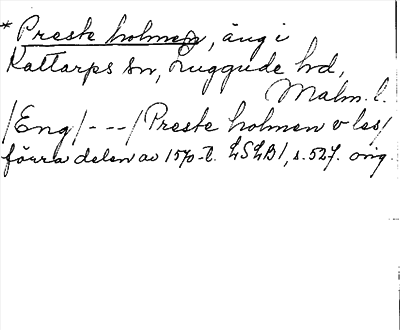 * Preste holmen, äng i
Kattarps sn, Luggude hd,
Malm. l.
/Eng/ --- / Preste holmen v les/
förra delen av 1570-t. LSLB1, s. 527. orig.